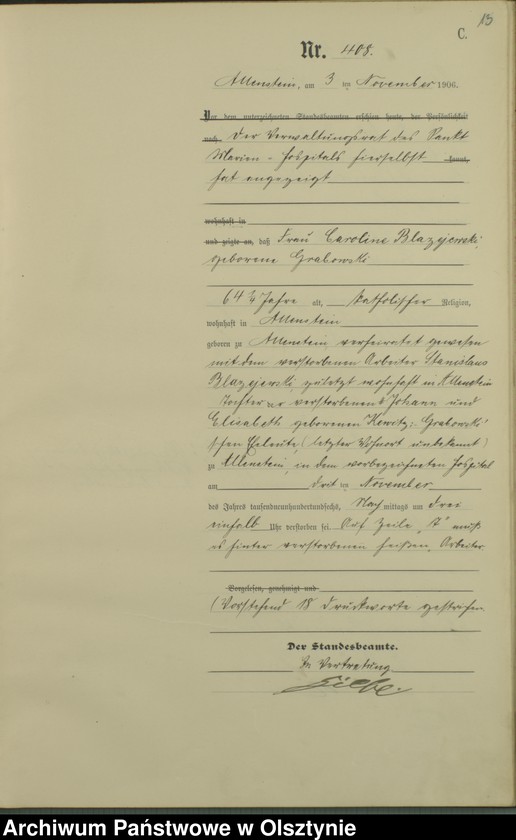 13
C.
Nr. 408.
Allenstein, am 3 ten November 1906.
Vor dem unterzeichneten Standesbeamten erschien heute, der Persönlichkeit
nach Der Verwaltungsrat des Sankt
Marien-Hospitals hierselbst kannt,
hat angezeigt
wohnhaft in
und zeigte an, daß Frau Caroline Blazejewski,
geborene Grabowski
64 3/4 Jahre alt, katholischer Religion,
wohnhaft in Allenstein
geboren zu Allenstein verheiratet gewesen
mit dem verstorbenen Arbeiter Stanislaus
Blazejewski zuletzt wohnhaft in Allenstein
Tochter der verstorbenen Johann und
Elisabeth geborenen Grabowski
schen Eheleute, (letzter Wohnort unbekannt)
zu Allenstein, in dem vorbezeichneten Hospital
am drit ten November
des Jahres tausendneunhundertundsechs, Nach mittags um drei
einhalb Uhr verstorben sei. Auf Zeile "7" muß
es hinter verstorbenen heißen, Arbeiter
Vorgelesen, genehmigt und
(Vorstehend 18 Druckworte gestrichen
Der Standesbeamte.
In Vertretung
Archiwum Państwowe w Olsztynie